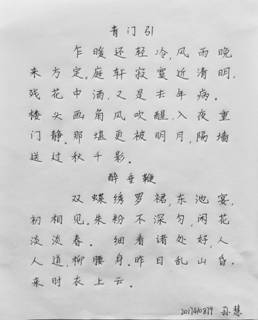 青门引
乍暖还轻冷,风雨晚
来方定,庭轩寂寞近清明,
残花中酒,又是去年病。
楼头画角风吹醒,入夜重
门静,那堪更被明月,隔墙
送过秋千影。
醉垂鞭
双蝶绣罗裙,东池宴,
初相见,朱粉不深匀,闲花
淡淡春。细看诸处好,人
人道,柳腰身,昨日乱山昏,
来时衣上云。
孙慧